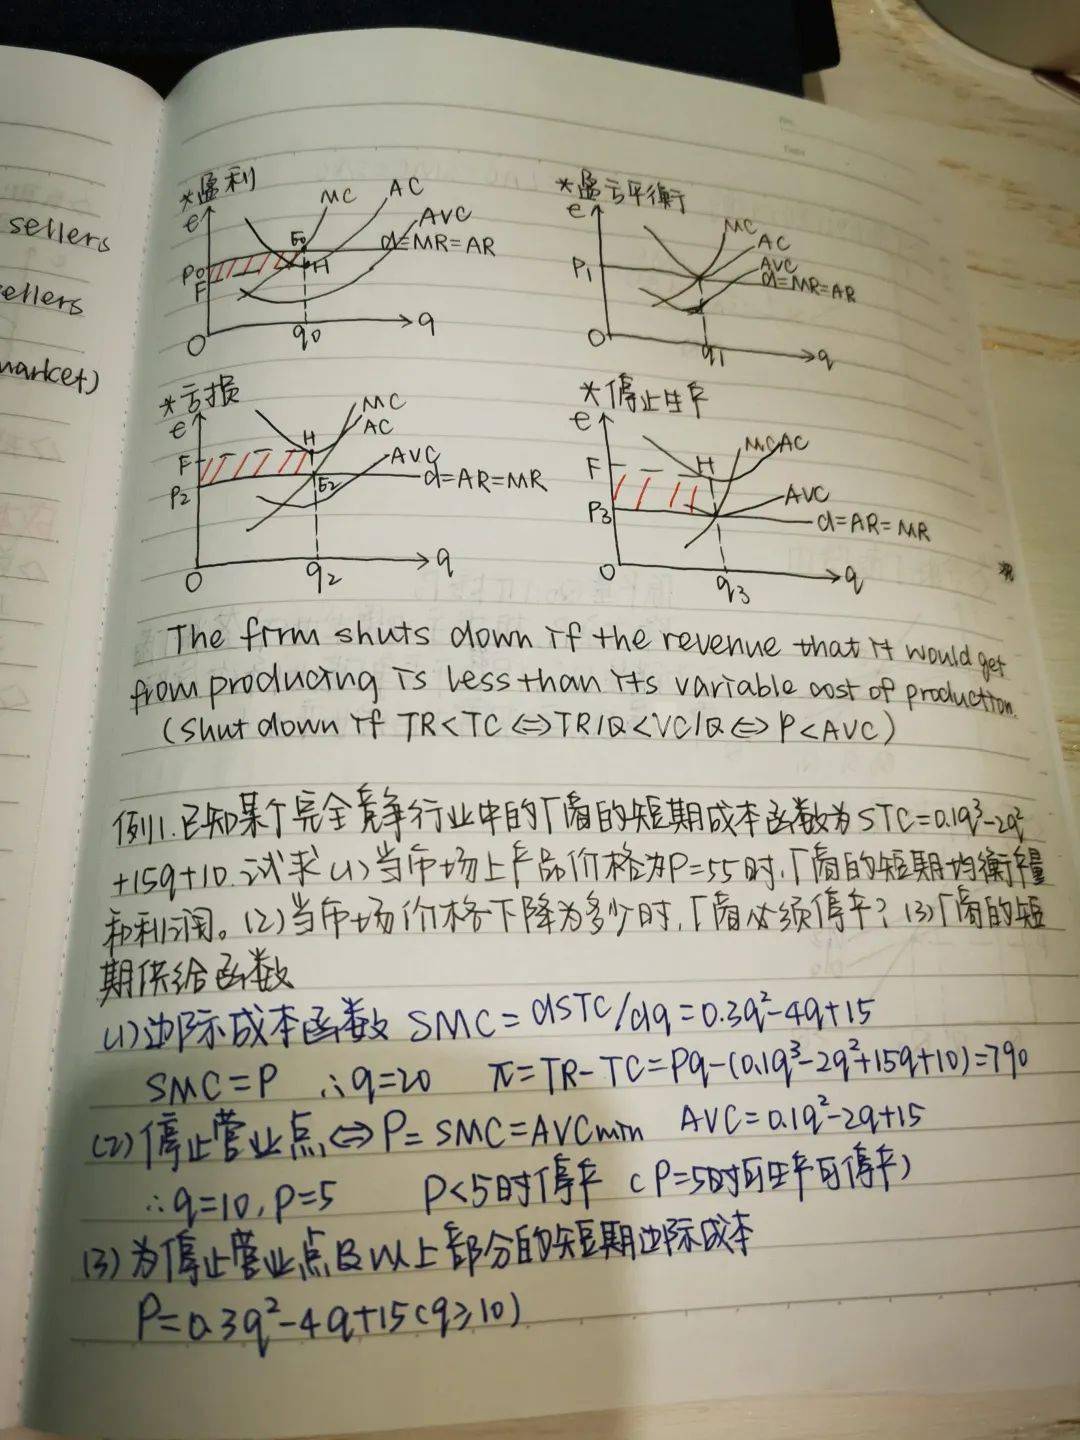 sellers
ellers
market)
*盈利
e
MC
AC
AVC
d=MR=AR
E0
H
P0
F
O
q0
q
*盈亏平衡
e
MC
AC
AVC
d=MR=AR
P1
O
q1
q
*亏损
e
MC
AC
AVC
d=AR=MR
H
F
P2
E2
O
q2
q
*停止生产
e
MC AC
AVC
d=AR=MR
F
H
P3
O
q3
q
The firm shuts down if the revenue that it would get
from producing is less than its variable cost of production.
(shut down if TR<TC⇔TR/Q<VC/Q⇔P<AVC)
例1.已知某个完全竞争行业中的厂商的短期成本函数为STC=0.1q³-2q²
+15q+10.试求(1)当市场上产品价格为P=55时,厂商的短期均衡产量
和利润。(2)当市场价格下降为多少时,厂商必须停产?(3)厂商的短
期供给函数
(1)边际成本函数 SMC=dSTC/dq=0.3q²-4q+15
SMC=P ∴q=20 π=TR-TC=Pq-(0.1q³-2q²+15q+10)=790
(2)停止营业点⇔P=SMC=AVCmin AVC=0.1q²-2q+15
∴q=10,P=5 P<5时停产 (P=5时可生产可停产)
(3)为停止营业点及以上部分的短期边际成本
P=0.3q²-4q+15(q≥10)